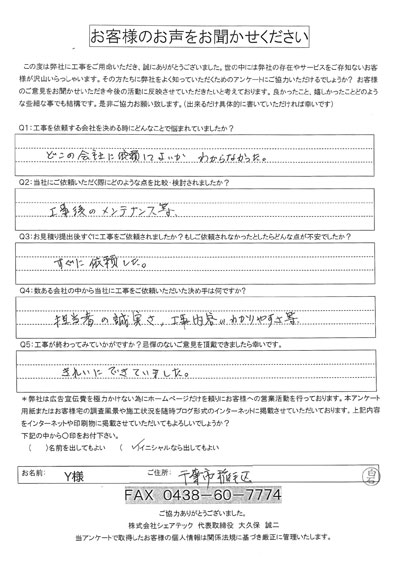 お客様のお声をお聞かせください
この度は弊社に工事をご用命いただき、誠にありがとうございました。世の中には弊社の存在やサービスをご存知ないお客
様が沢山いらっしゃいます。その方たちに弊社をよく知っていただくためのアンケートにご協力いただけるでしょうか？ お客様
のご意見をお聞かせいただき今後の活動に反映させていただきたいと考えております。良かったこと、嬉しかったことどのよう
な些細な事でも結構です。是非ご協力お願い致します。（出来るだけ具体的に書いていただければ幸いです）
Q1:工事を依頼する会社を決める時にどんなことで悩まれていましたか？
どこの会社に依頼してよいか わからなかった。
Q2:当社にご依頼いただく際にどのような点を比較・検討されましたか？
工事後のメンテナンス等
Q3:お見積り提出後すぐに工事をご依頼されましたか？もしご依頼されなかったとしたらどんな点が不安でしたか？
すぐに依頼した。
Q4:数ある会社の中から当社に工事をご依頼いただいた決め手は何ですか？
担当者の誠実さ、工事内容のわかりやすさ等
Q5:工事が終わってみていかがですか？忌憚のないご意見を頂戴できましたら幸いです。
きれいにできていました。
＊弊社は広告宣伝費を極力かけない為にホームページだけを頼りにお客様への営業活動を行っております。本アンケート
用紙またはお客様宅の調査風景や施工状況を随時ブログ形式のインターネットに掲載させていただいております。上記内容
をインターネットや印刷物に掲載させていただいてもよろしいでしょうか？
下記の中から〇印をお付け下さい。
（ ）名前を出してもよい （✓）イニシャルなら出してもよい
お名前: Y様 ご住所: 千葉市稲毛区
白石
FAX 0438-60-7774
ご協力ありがとうございました。
株式会社シェアテック 代表取締役 大久保 誠二
当アンケートで取得したお客様の個人情報は関係法規に基づき厳正に管理いたします。